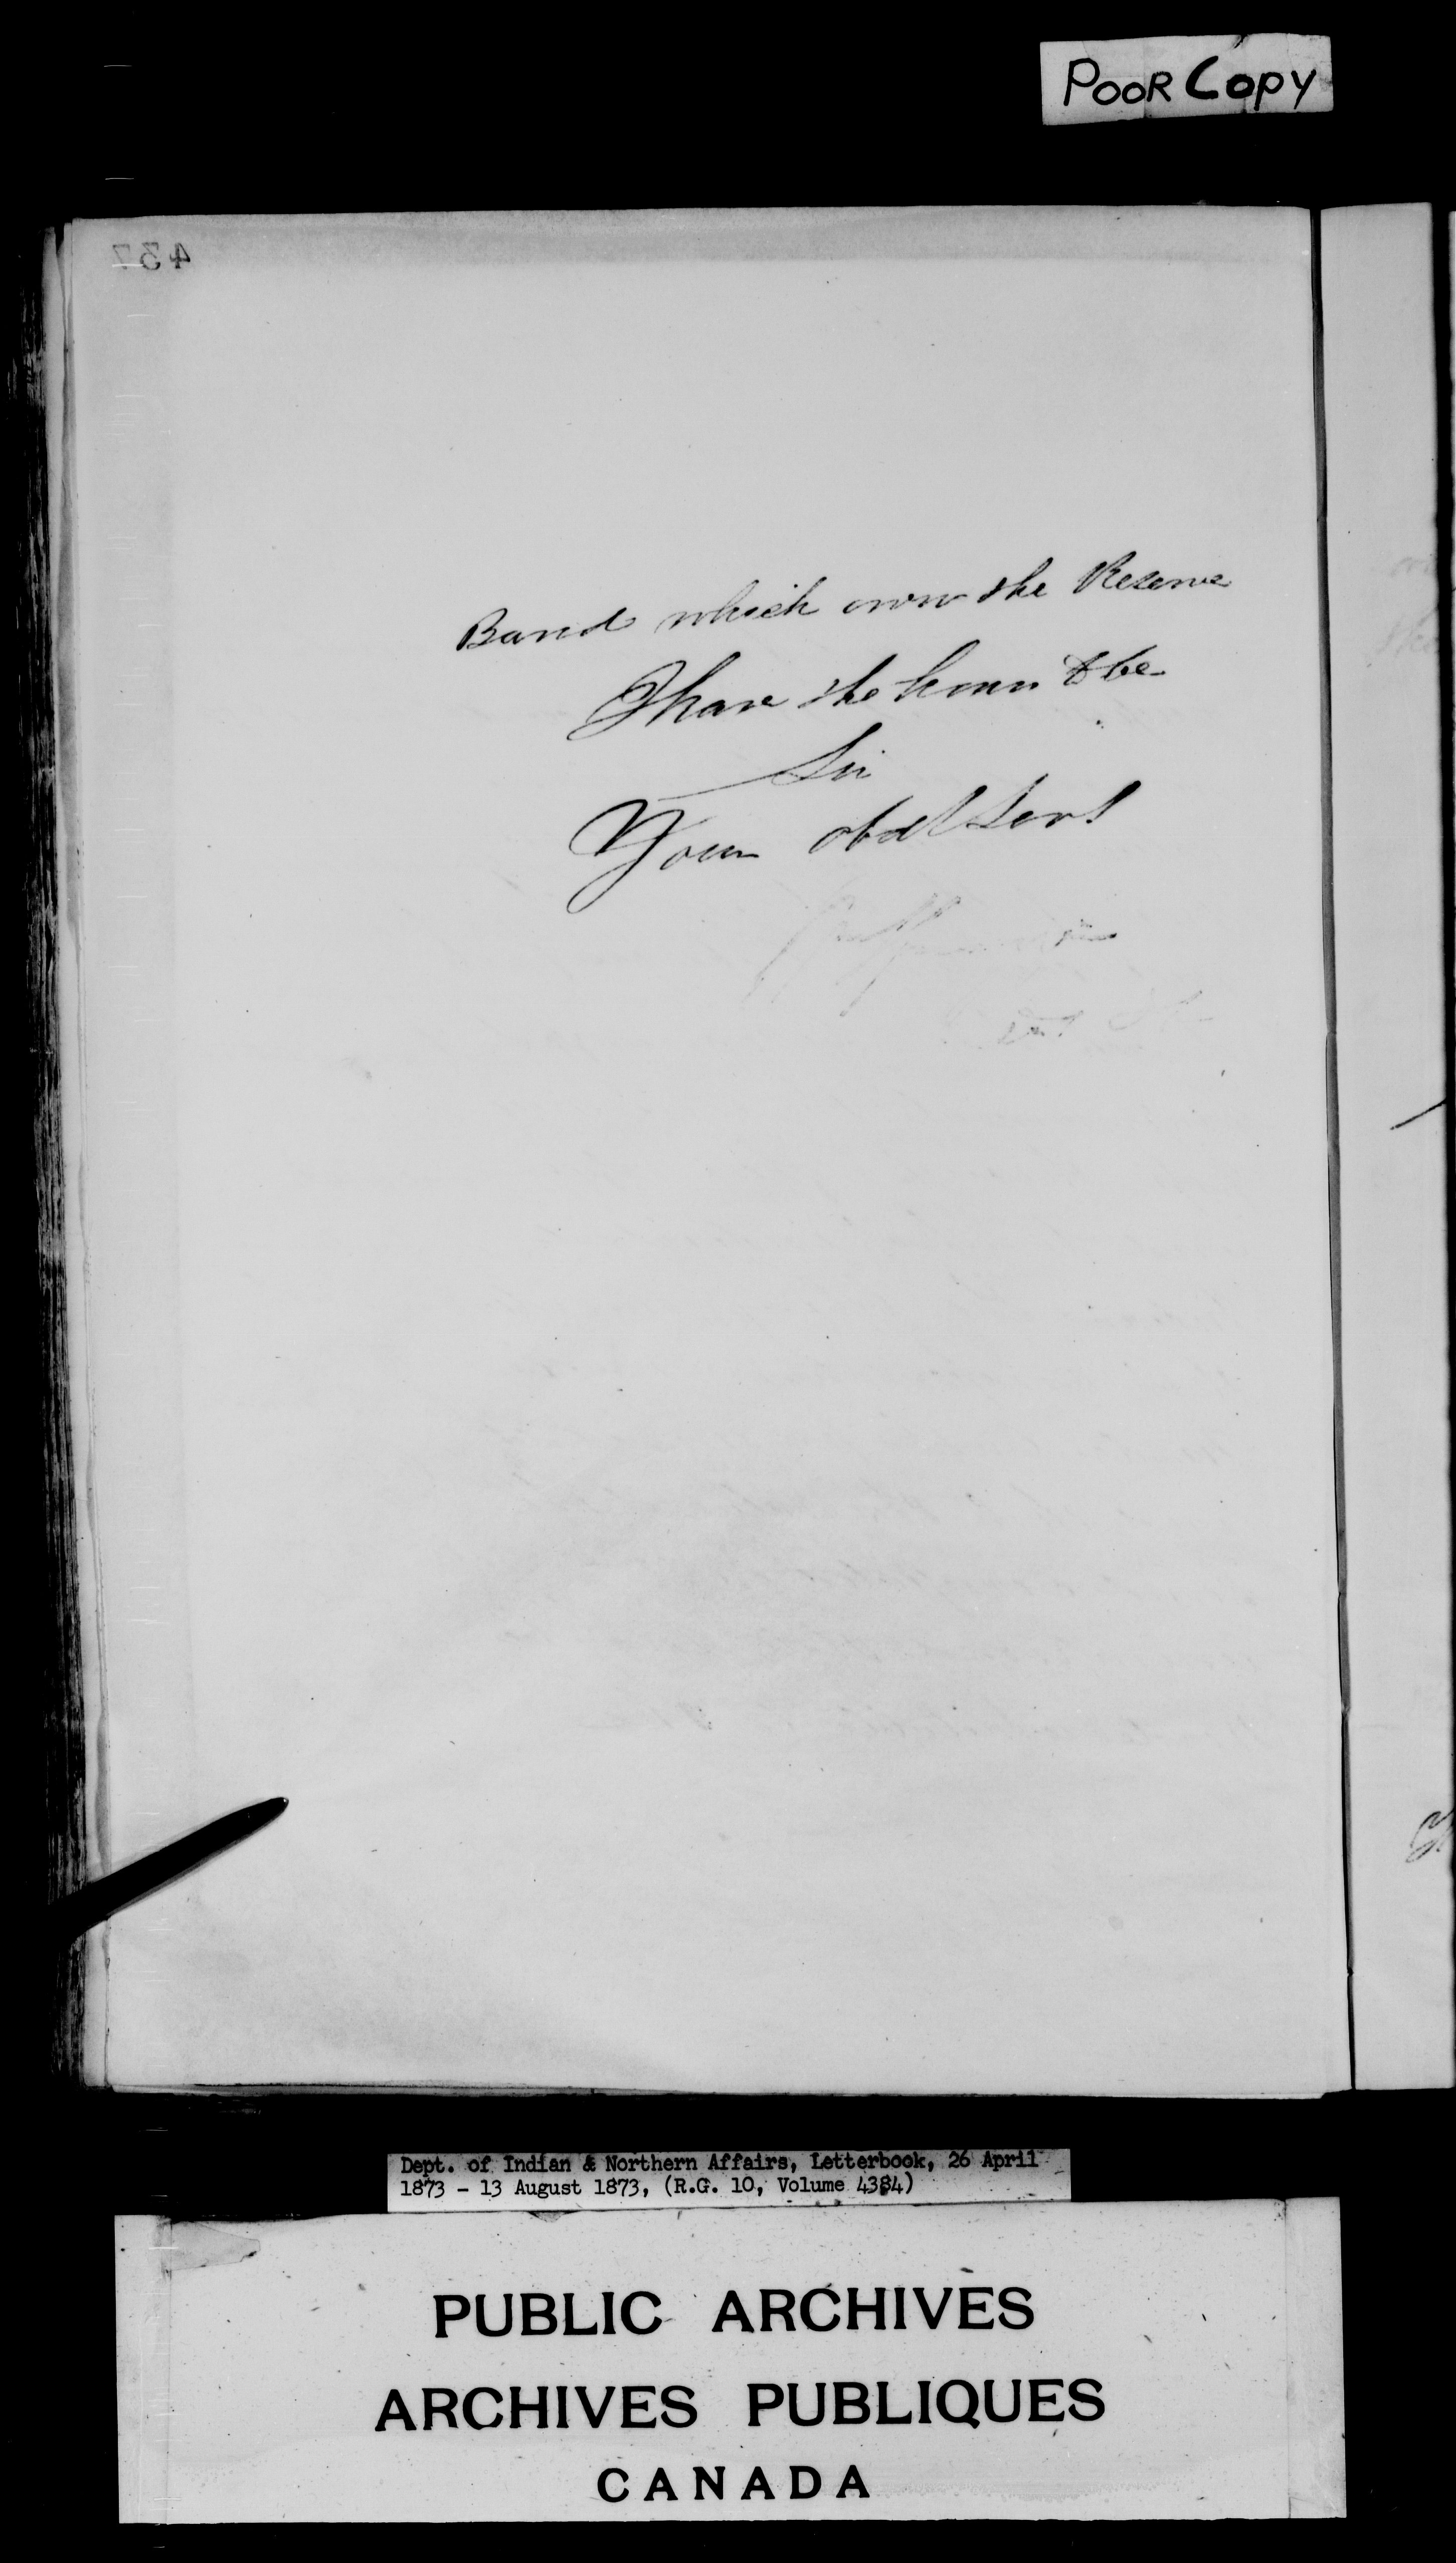 POOR COPY
437
Band which own the Reserve
I have the honor to be
Sir
Your obdt Servt
Dept. of Indian & Northern Affairs, Letterbook, 26 April
1873 - 13 August 1873, (R.G. 10, Volume 4384)
PUBLIC ARCHIVES
ARCHIVES PUBLIQUES
CANADA